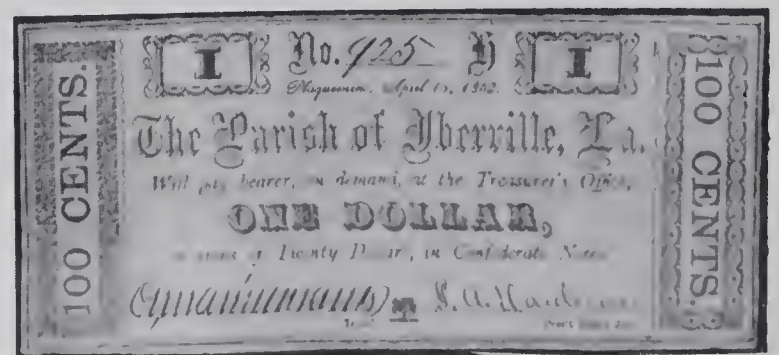 100 CENTS.
I No. 925 H I
Plaquemine, April 15, 1862.
The Parish of Iberville, La.
Will pay bearer, on demand, at the Treasurer's Office,
ONE DOLLAR,
in sums of Twenty Dollars, in Confederate Notes
100 CENTS.